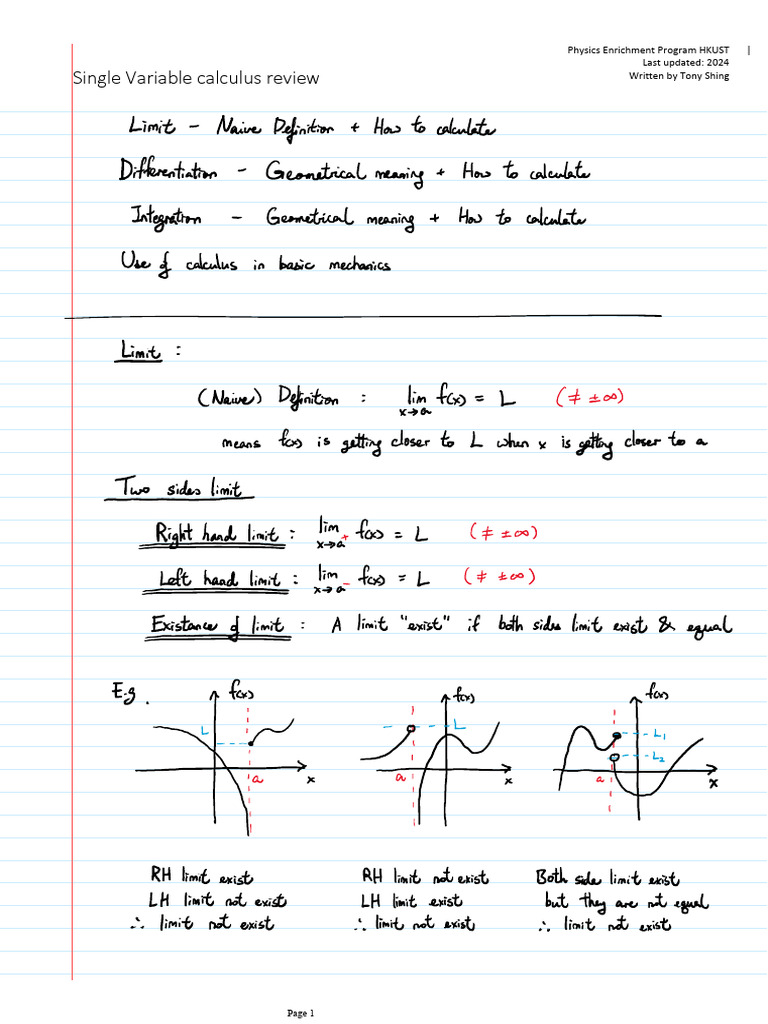 Physics Enrichment Program HKUST |
Last updated: 2024
Written by Tony Shing
Single Variable calculus review
Limit - Naive Definition + How to calculate
Differentiation - Geometrical meaning + How to calculate
Integration - Geometrical meaning + How to calculate
Use of calculus in basic mechanics
Limit :
(Naive) Definition : lim x→a f(x) = L (≠ ±∞)
means f(x) is getting closer to L when x is getting closer to a
Two sides limit
Right hand limit : lim x→a+ f(x) = L (≠ ±∞)
Left hand limit : lim x→a- f(x) = L (≠ ±∞)
Existance of limit : A limit "exist" if both sides limit exist & equal
E.g.
f(x) L a x
f(x) L a x
f(x) L₁ L₂ a x
RH limit exist
LH limit not exist
∴ limit not exist
RH limit not exist
LH limit exist
∴ limit not exist
Both side limit exist
but they are not equal
∴ limit not exist
Page 1